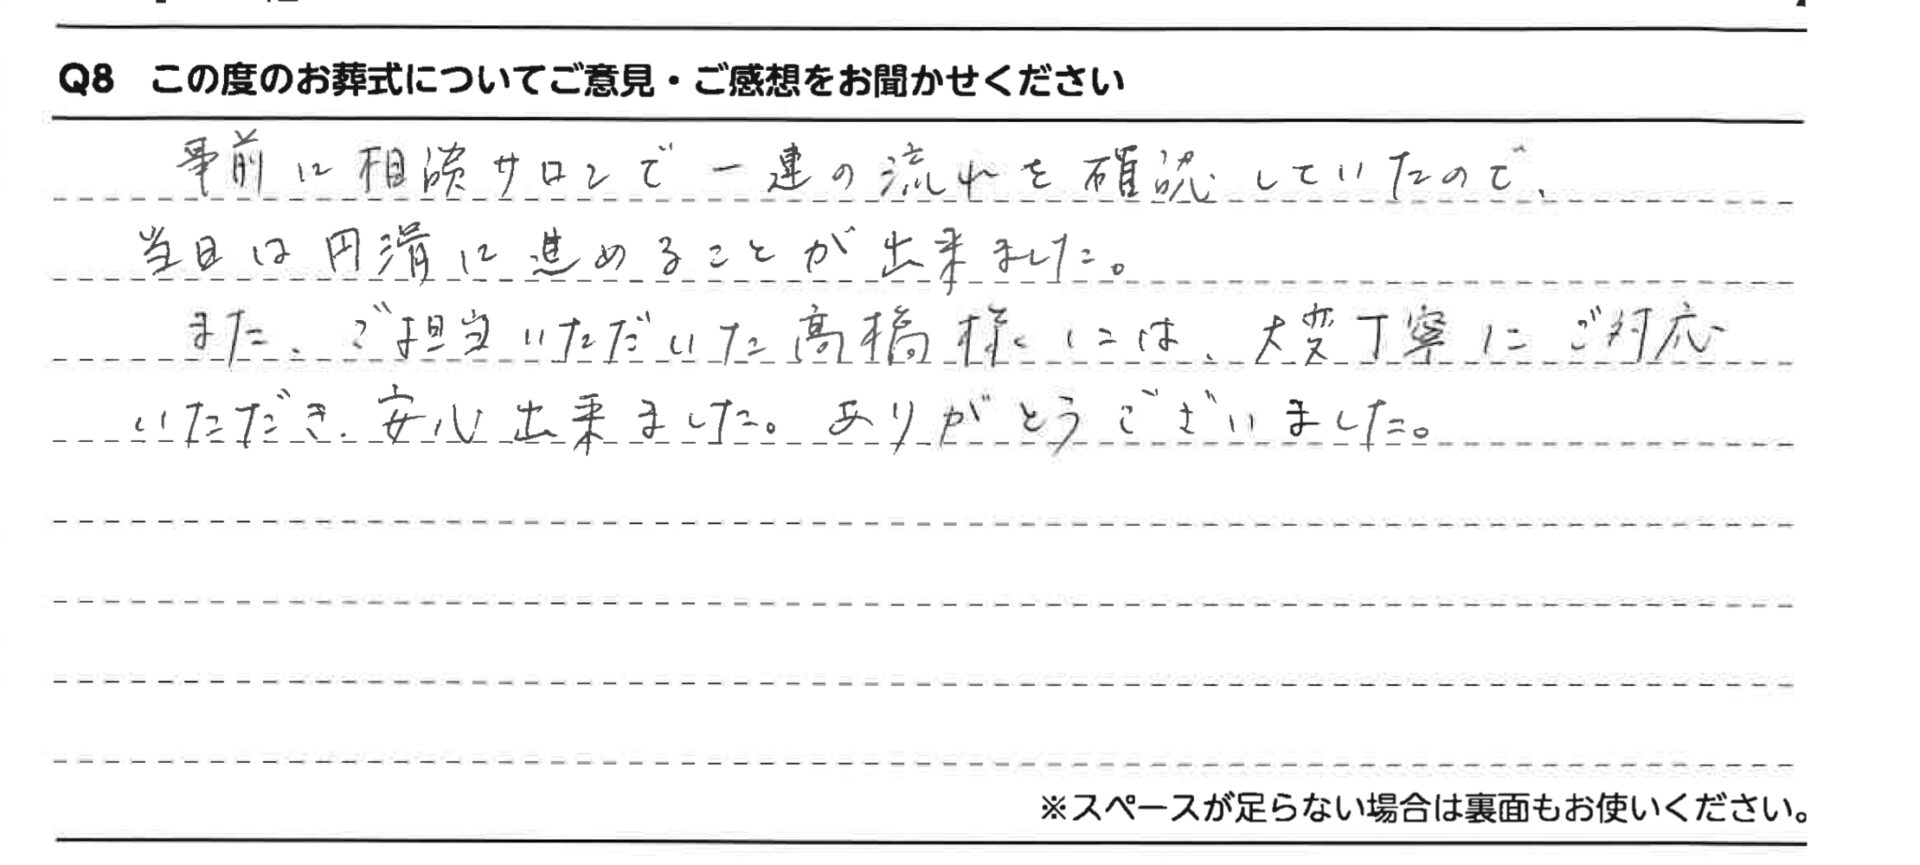 Q8 この度のお葬式についてご意見・ご感想をお聞かせください
事前に相談サロンで一連の流れを確認していたので、
当日は円滑に進めることが出来ました。
また、ご担当いただいた高橋様には、大変丁寧にご対応
いただき、安心出来ました。ありがとうございました。
※スペースが足らない場合は裏面もお使いください。